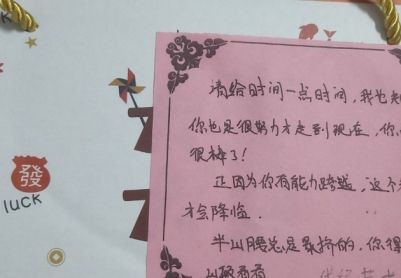 發
luck
请给时间一点时间，我也知
你也是很努力才走到现在，你
很棒了！
正因为你有能力跨越，这个
才会降临．
半山腰总是最挤的，你得
山顶看看